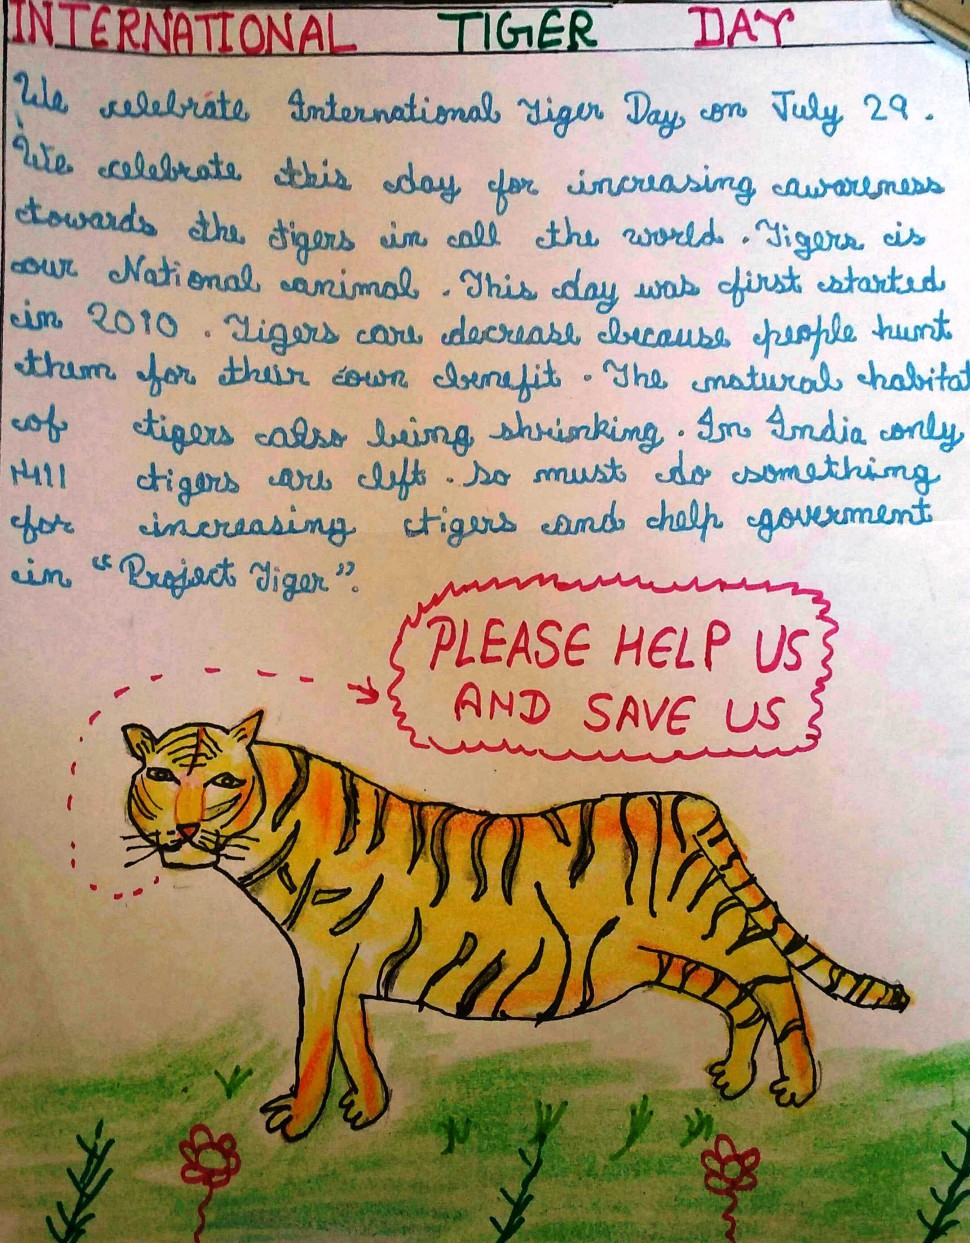 INTERNATIONAL TIGER DAY
We celebrate International Tiger Day on July 29.
We celebrate this day for increasing awareness
towards the tigers in all the world. Tigers is
our National animal. This day was first started
in 2010. Tigers are decrease because people hunt
them for their own benefit. The natural habitat
of tigers also being shrinking. In India only
1411 tigers are left. so must do something
for increasing tigers and help goverment
in "Project Tiger".
PLEASE HELP US
AND SAVE US